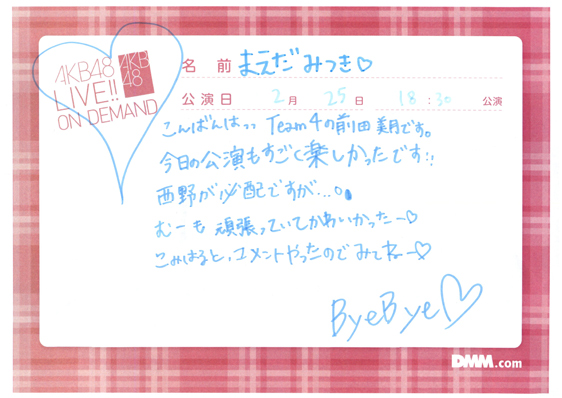 AKB48
LIVE!!
ON DEMAND
AKB
48
名 前 まえだみつき♡
公演日 2月 25日 18:30 公演
こんばんはっっ Team4の前田美月です。
今日の公演もすごく楽しかったです!!
西野が心配ですが...。
むーも頑張っていてかわいかったー♡
こみはると、コメントやったのでみてねー♡
ByeBye♡
DMM.com